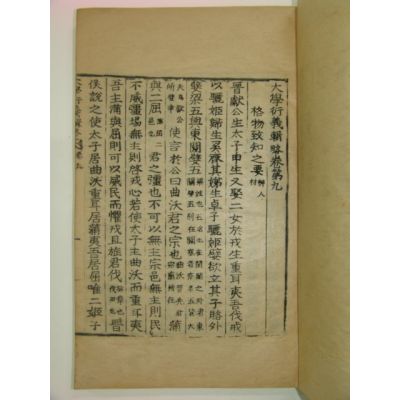 大學衍義輯略卷第九
格物致知之要 辨人材
晉獻公生太子申生又娶二女於戎生重耳夷吾伐戎
以驪姬歸生奚齊其娣生卓子驪姬嬖欲立其子賂外
嬖梁五與東關嬖五
大夫爲獻公所嬖幸 使言於公曰曲沃君之宗也 蒲
與二屈 君之疆也不可以無主宗邑無主則民
不威疆埸無主則啓戎心若使太子主曲沃而重耳夷
吾主蒲與屈則可以威民而懼戎且旌君伐 晉
侯說之使太子居曲沃重耳居蒲夷吾居屈唯二姬子